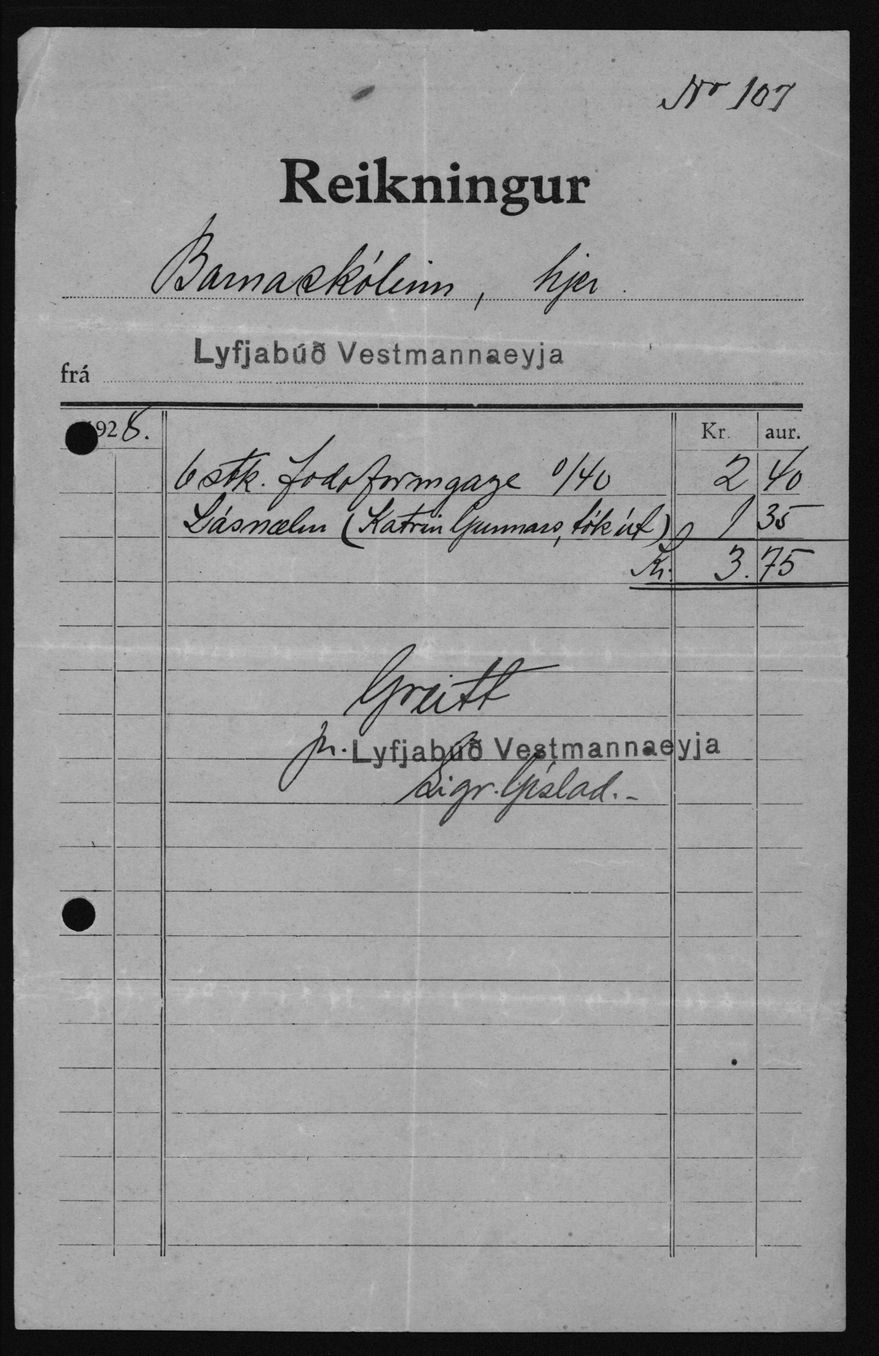 No 107
Reikningur
Barnaskólinn, hjer.
frá Lyfjabúð Vestmannaeyja
1928. Kr. aur.
6 stk. Jodoformgaze 0/40 2 40
Lásnælur (Katrín Gunnars, tók út) 1 35
Kr. 3.75
Greitt
pr. Lyfjabúð Vestmannaeyja
Sigr. Gíslad.-